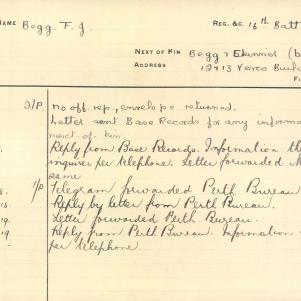 NAME Begg. F. J. REG. &C. 16th Batt
NEXT OF KIN Begg & Skinner (b
ADDRESS 12 & 13 Verco Buil
F
O/P No off. rep., envelope returned.
Letter sent Base Records for any informa
next of kin.
Reply from Base Records. Information th
inquirer per telephone. Letter forwarded
same
1/P Telegram forwarded Perth Bureau
16. Reply by letter from Perth Bureau.
19. Letter forwarded Perth Bureau.
19. Reply from Perth Bureau. Information
per telephone.